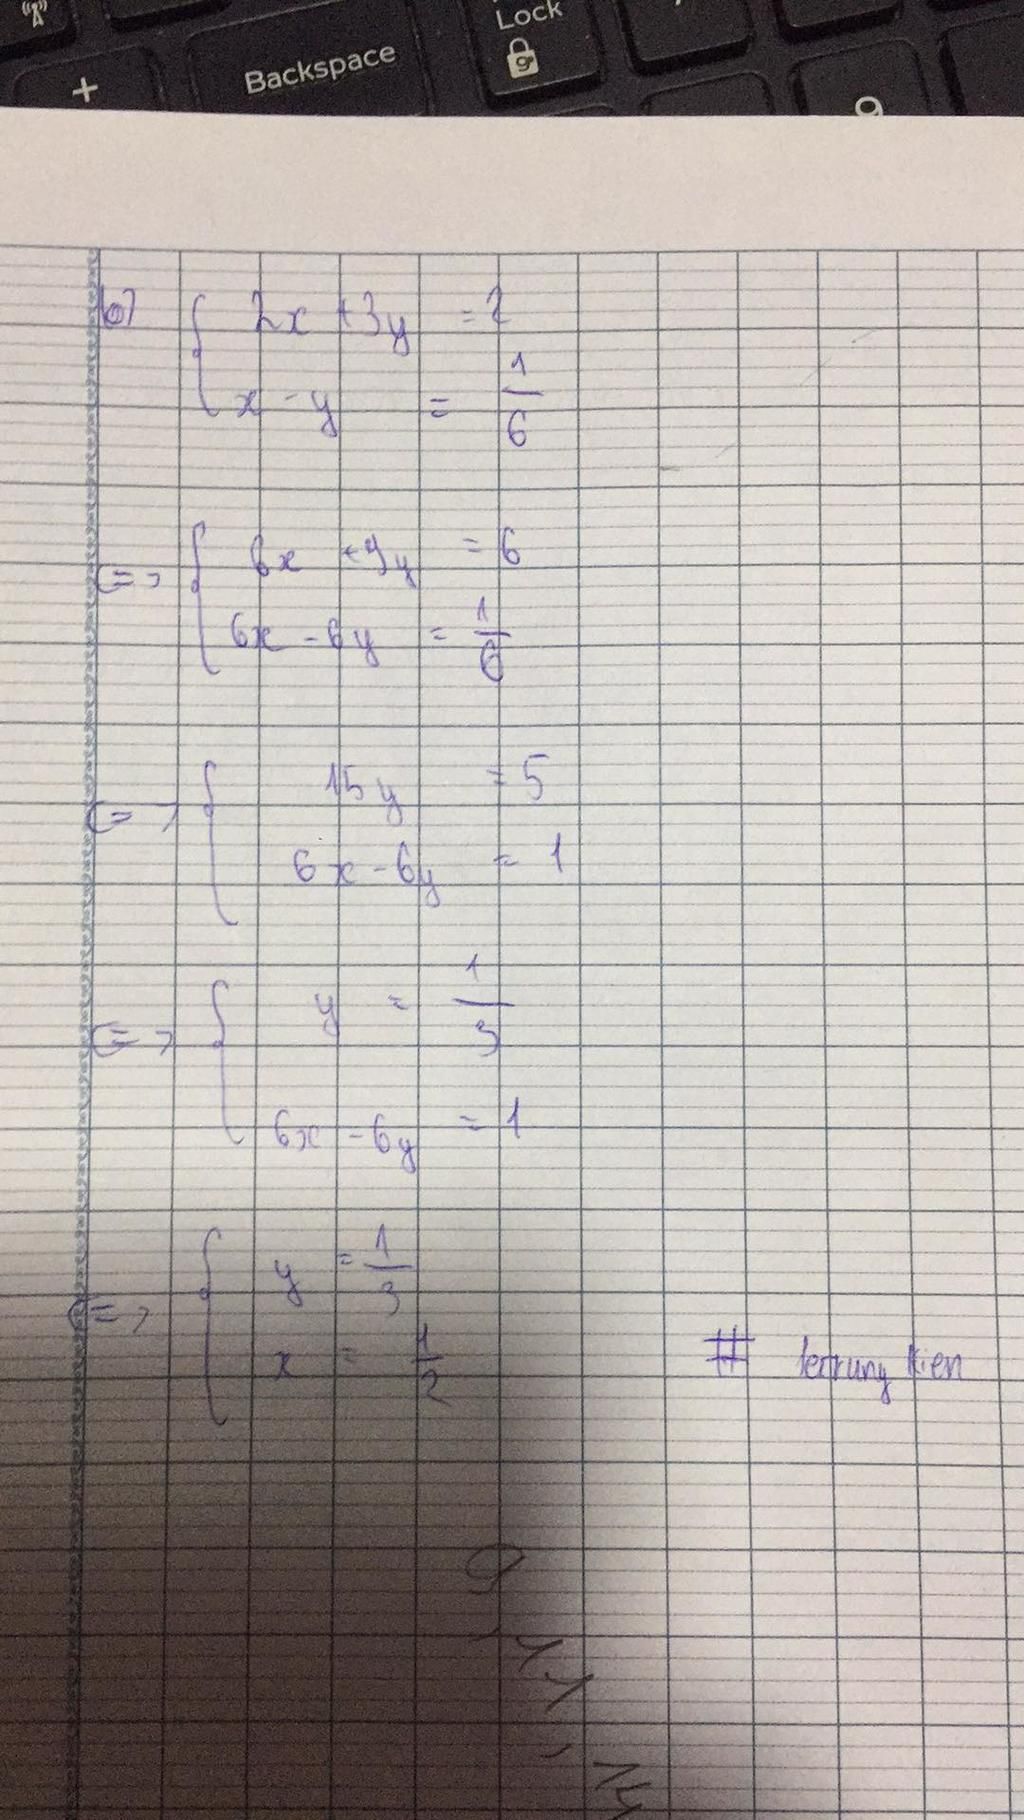 +
Backspace
Lock
9
b) { 2x + 3y = 2
x - y = 1/6
<=> { 6x + 9y = 6
6x - 6y = 1/6
<=> { 15y = 5
6x - 6y = 1
<=> { y = 1/3
6x - 6y = 1
<=> { y = 1/3
x = 1/2
# letrung kien